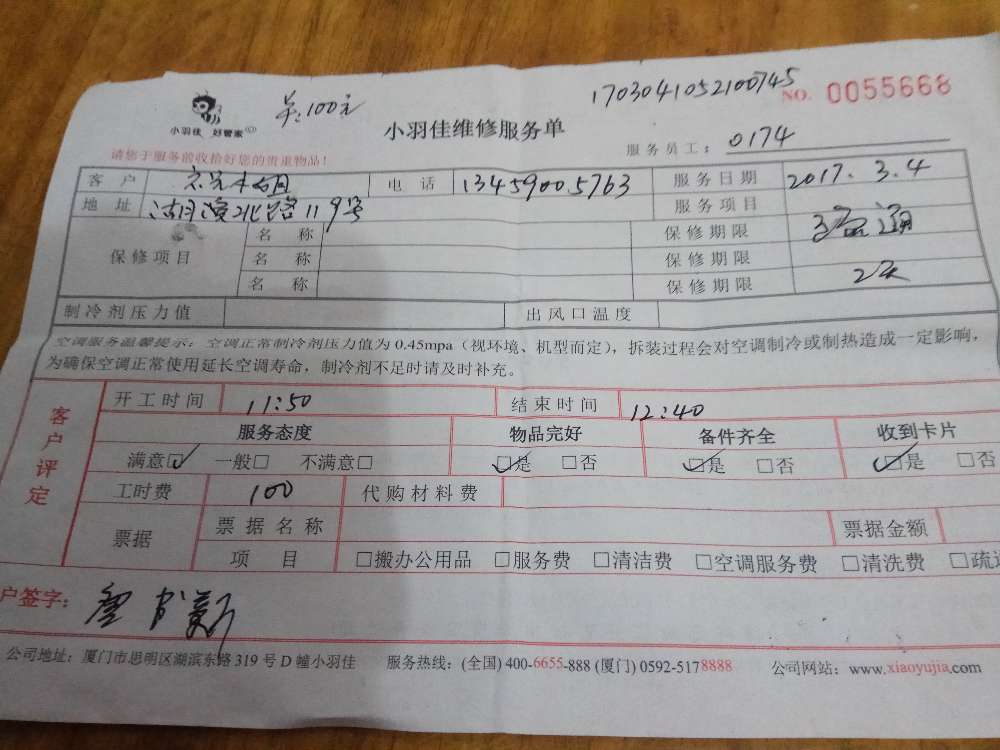 单:100元
1703041052100745
NO. 0055668
小羽佳 好管家
小羽佳维修服务单
服务员工: 0174
请您于服务前收拾好您的贵重物品!
客户 电话 13459005763 服务日期 2017.3.4
地址 湖滨北路119号 服务项目
保修项目 名称 保修期限
名称 保修期限
名称 保修期限 2天
制冷剂压力值 出风口温度
空调服务温馨提示:空调正常制冷剂压力值为0.45mpa(视环境、机型而定),拆装过程会对空调制冷或制热造成一定影响,
为确保空调正常使用延长空调寿命,制冷剂不足时请及时补充。
客户评定
开工时间 11:50 结束时间 12:40
服务态度 物品完好 备件齐全 收到卡片
满意☑ 一般□ 不满意□ ☑是 □否 ☑是 □否 ☑是 □否
工时费 100 代购材料费
票据 票据名称 票据金额
项目 □搬办公用品 □服务费 □清洁费 □空调服务费 □清洗费 □疏
户签字:
公司地址:厦门市思明区湖滨东路319号D幢小羽佳 服务热线:(全国)400-6655-888(厦门)0592-5178888 公司网站:www.xiaoyujia.com